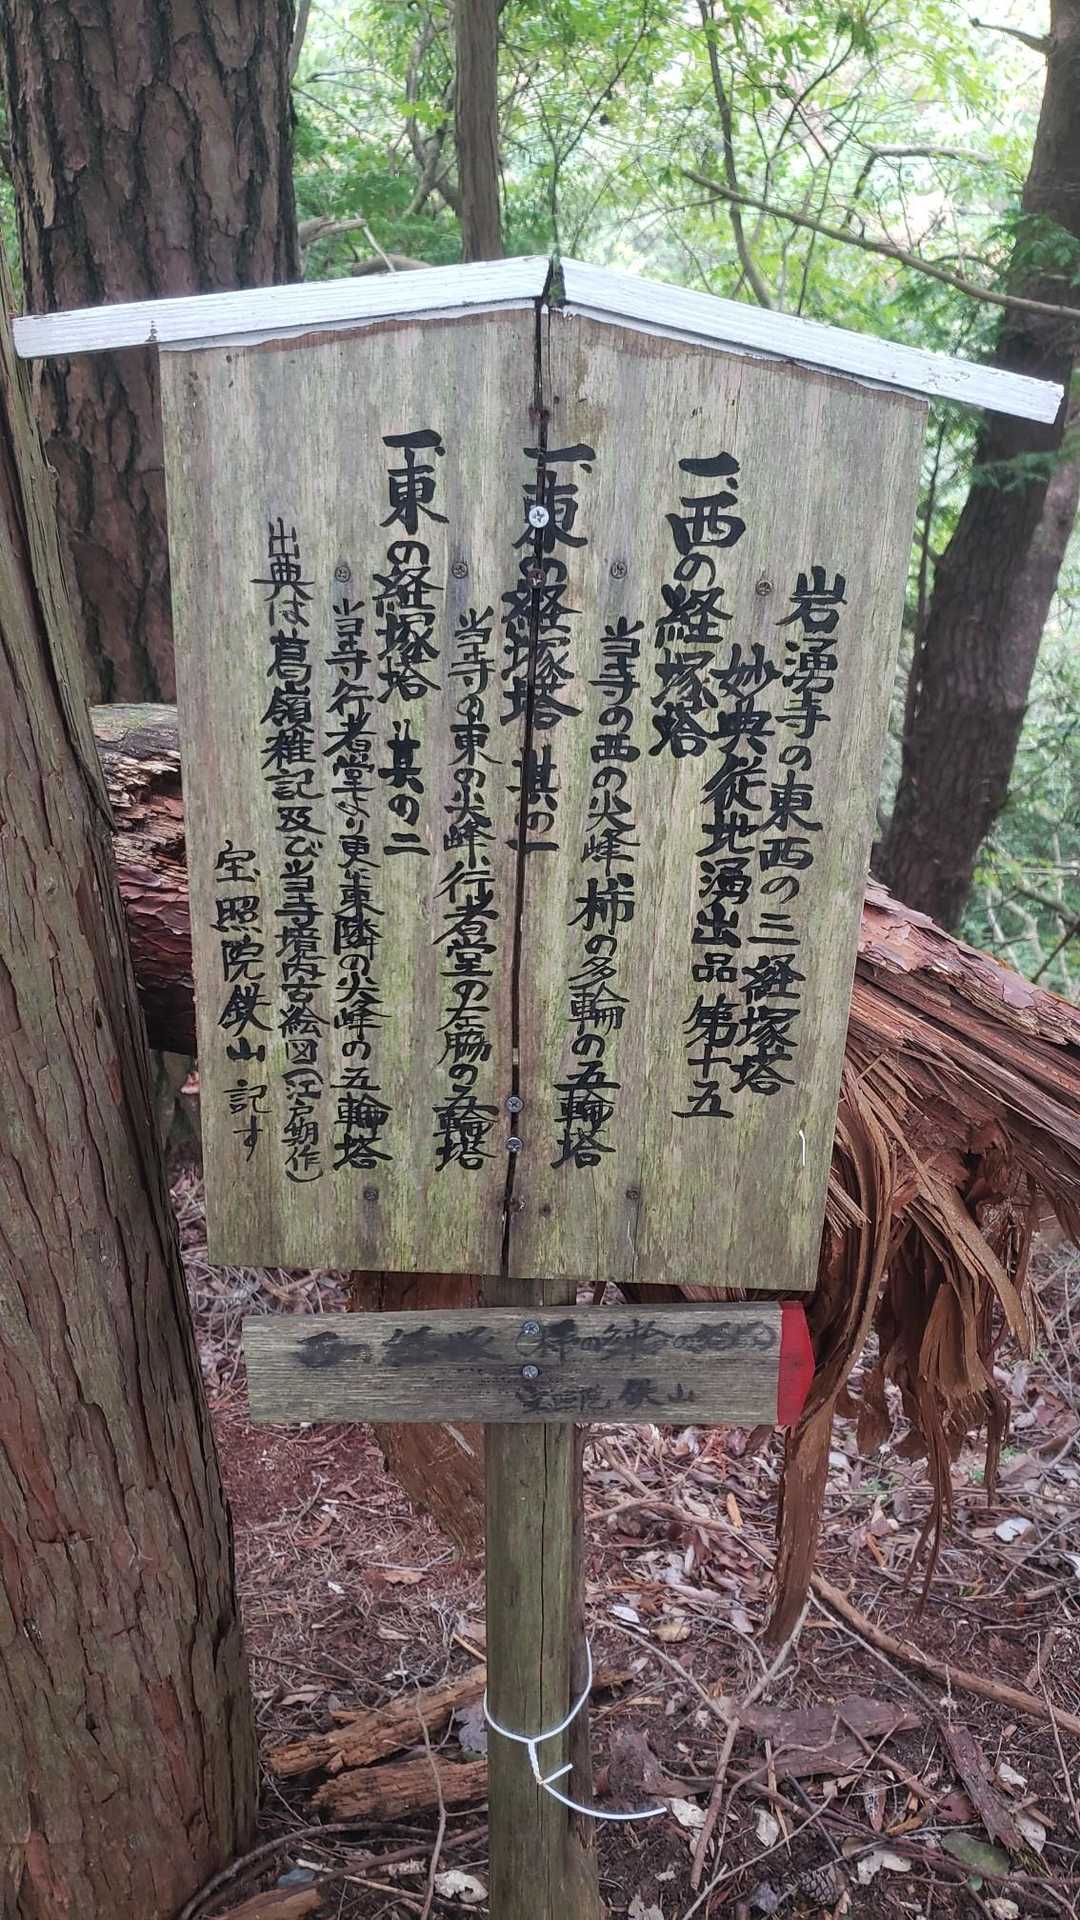 岩湧寺の東西の三経塚塔
妙典従地湧出品第十五
一、西の経塚塔
当寺の西の尖峰、柿の多輪の五輪塔
一、東の経塚塔 其の一
当寺の東の尖峰、行者堂の左脇の五輪塔
一、東の経塚塔 其の二
当寺行者堂より更に東隣の尖峰の五輪塔
出典は葛嶺雑記及び当寺境内古絵図(江戸期作)
宝照院鉄山記す
の多輪の
宝照院 鉄山